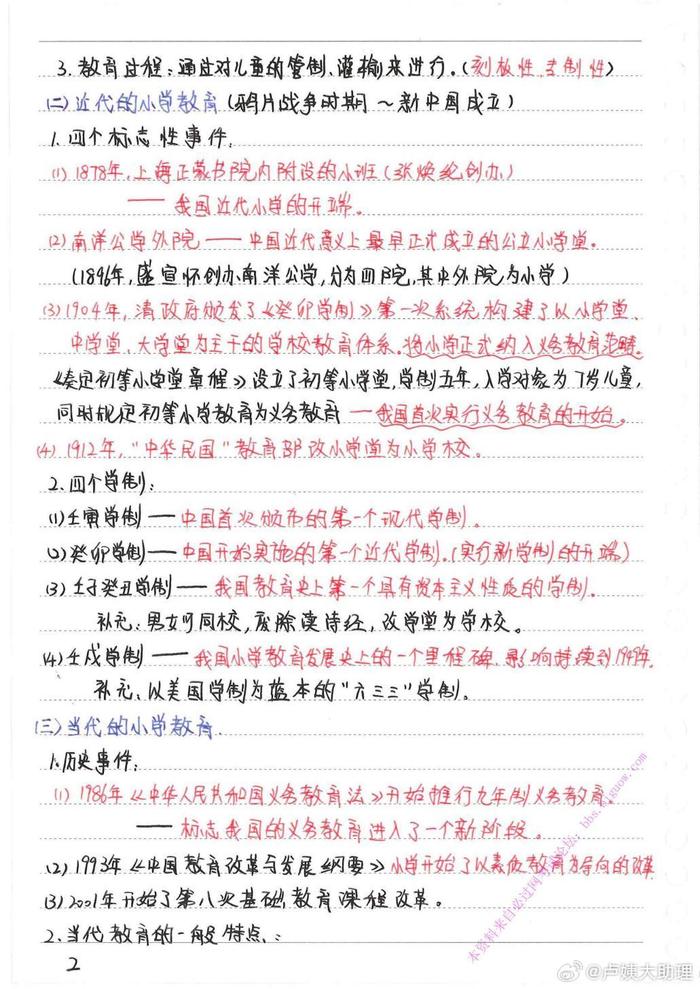 3.教育过程:通过对儿童的管制、灌输来进行。(刻板性、专制性)
(二)近代的小学教育(鸦片战争时期~新中国成立)
1.四个标志性事件:
(1)1878年,上海正蒙书院内附设的小班(张焕纶创办)
——我国近代小学的开端。
(2)南洋公学外院——中国近代意义上最早正式成立的公立小学堂。
(1896年,盛宣怀创办南洋公学,分为四院,其中外院为小学)
(3)1904年,清政府颁发了《癸卯学制》第一次系统构建了以小学堂、
中学堂、大学堂为主干的学校教育体系。将小学正式纳入义务教育范畴。
《奏定初等小学堂章程》设立了初等小学堂,学制五年,入学对象为7岁儿童,
同时规定初等小学教育为义务教育——我国首次实行义务教育的开始。
(4)1912年,"中华民国"教育部改小学堂为小学校。
2.四个学制:
(1)壬寅学制——中国首次颁布的第一个现代学制。
(2)癸卯学制——中国开始实施的第一个近代学制。(实行新学制的开端)
(3)壬子癸丑学制——我国教育史上第一个具有资本主义性质的学制.
补充:男女可同校,废除读诗经,改学堂为学校。
(4)壬戌学制——我国小学教育发展史上的一个里程碑.影响持续到1949年.
补充、以美国学制为蓝本的"六三三"学制。
(三)当代的小学教育.
1.历史事件:
(1)1986年《中华人民共和国义务教育法》开始推行九年制义务教育.
——标志我国的义务教育进入了一个新阶段。
(2)1993年《中国教育改革与发展纲要》小学开始了以素质教育为导向的改革
(3)2001年开始了第八次基础教育课程改革。
2.当代教育的一般特点.:
2
本资料来自必过网
论坛:bbs.biguow.com
@卢姨大助理